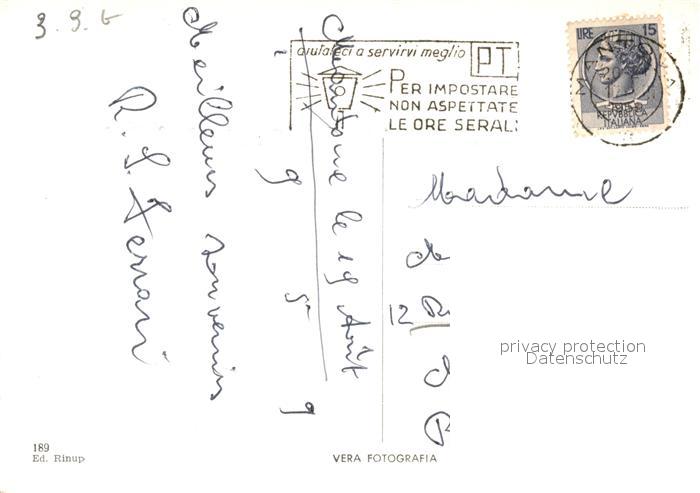 3.9.6
Mantoue le 19 Août
1
9
5
9
Meilleurs souvenirs
R. G. Ferrari
aiutateci a servirvi meglio PT
PER IMPOSTARE
NON ASPETTATE
LE ORE SERALI
LIRE 15
1959
REPVBBLICA
ITALIANA
Madame
de
12 R
privacy protection
Datenschutz
189
Ed. Rinup
VERA FOTOGRAFIA